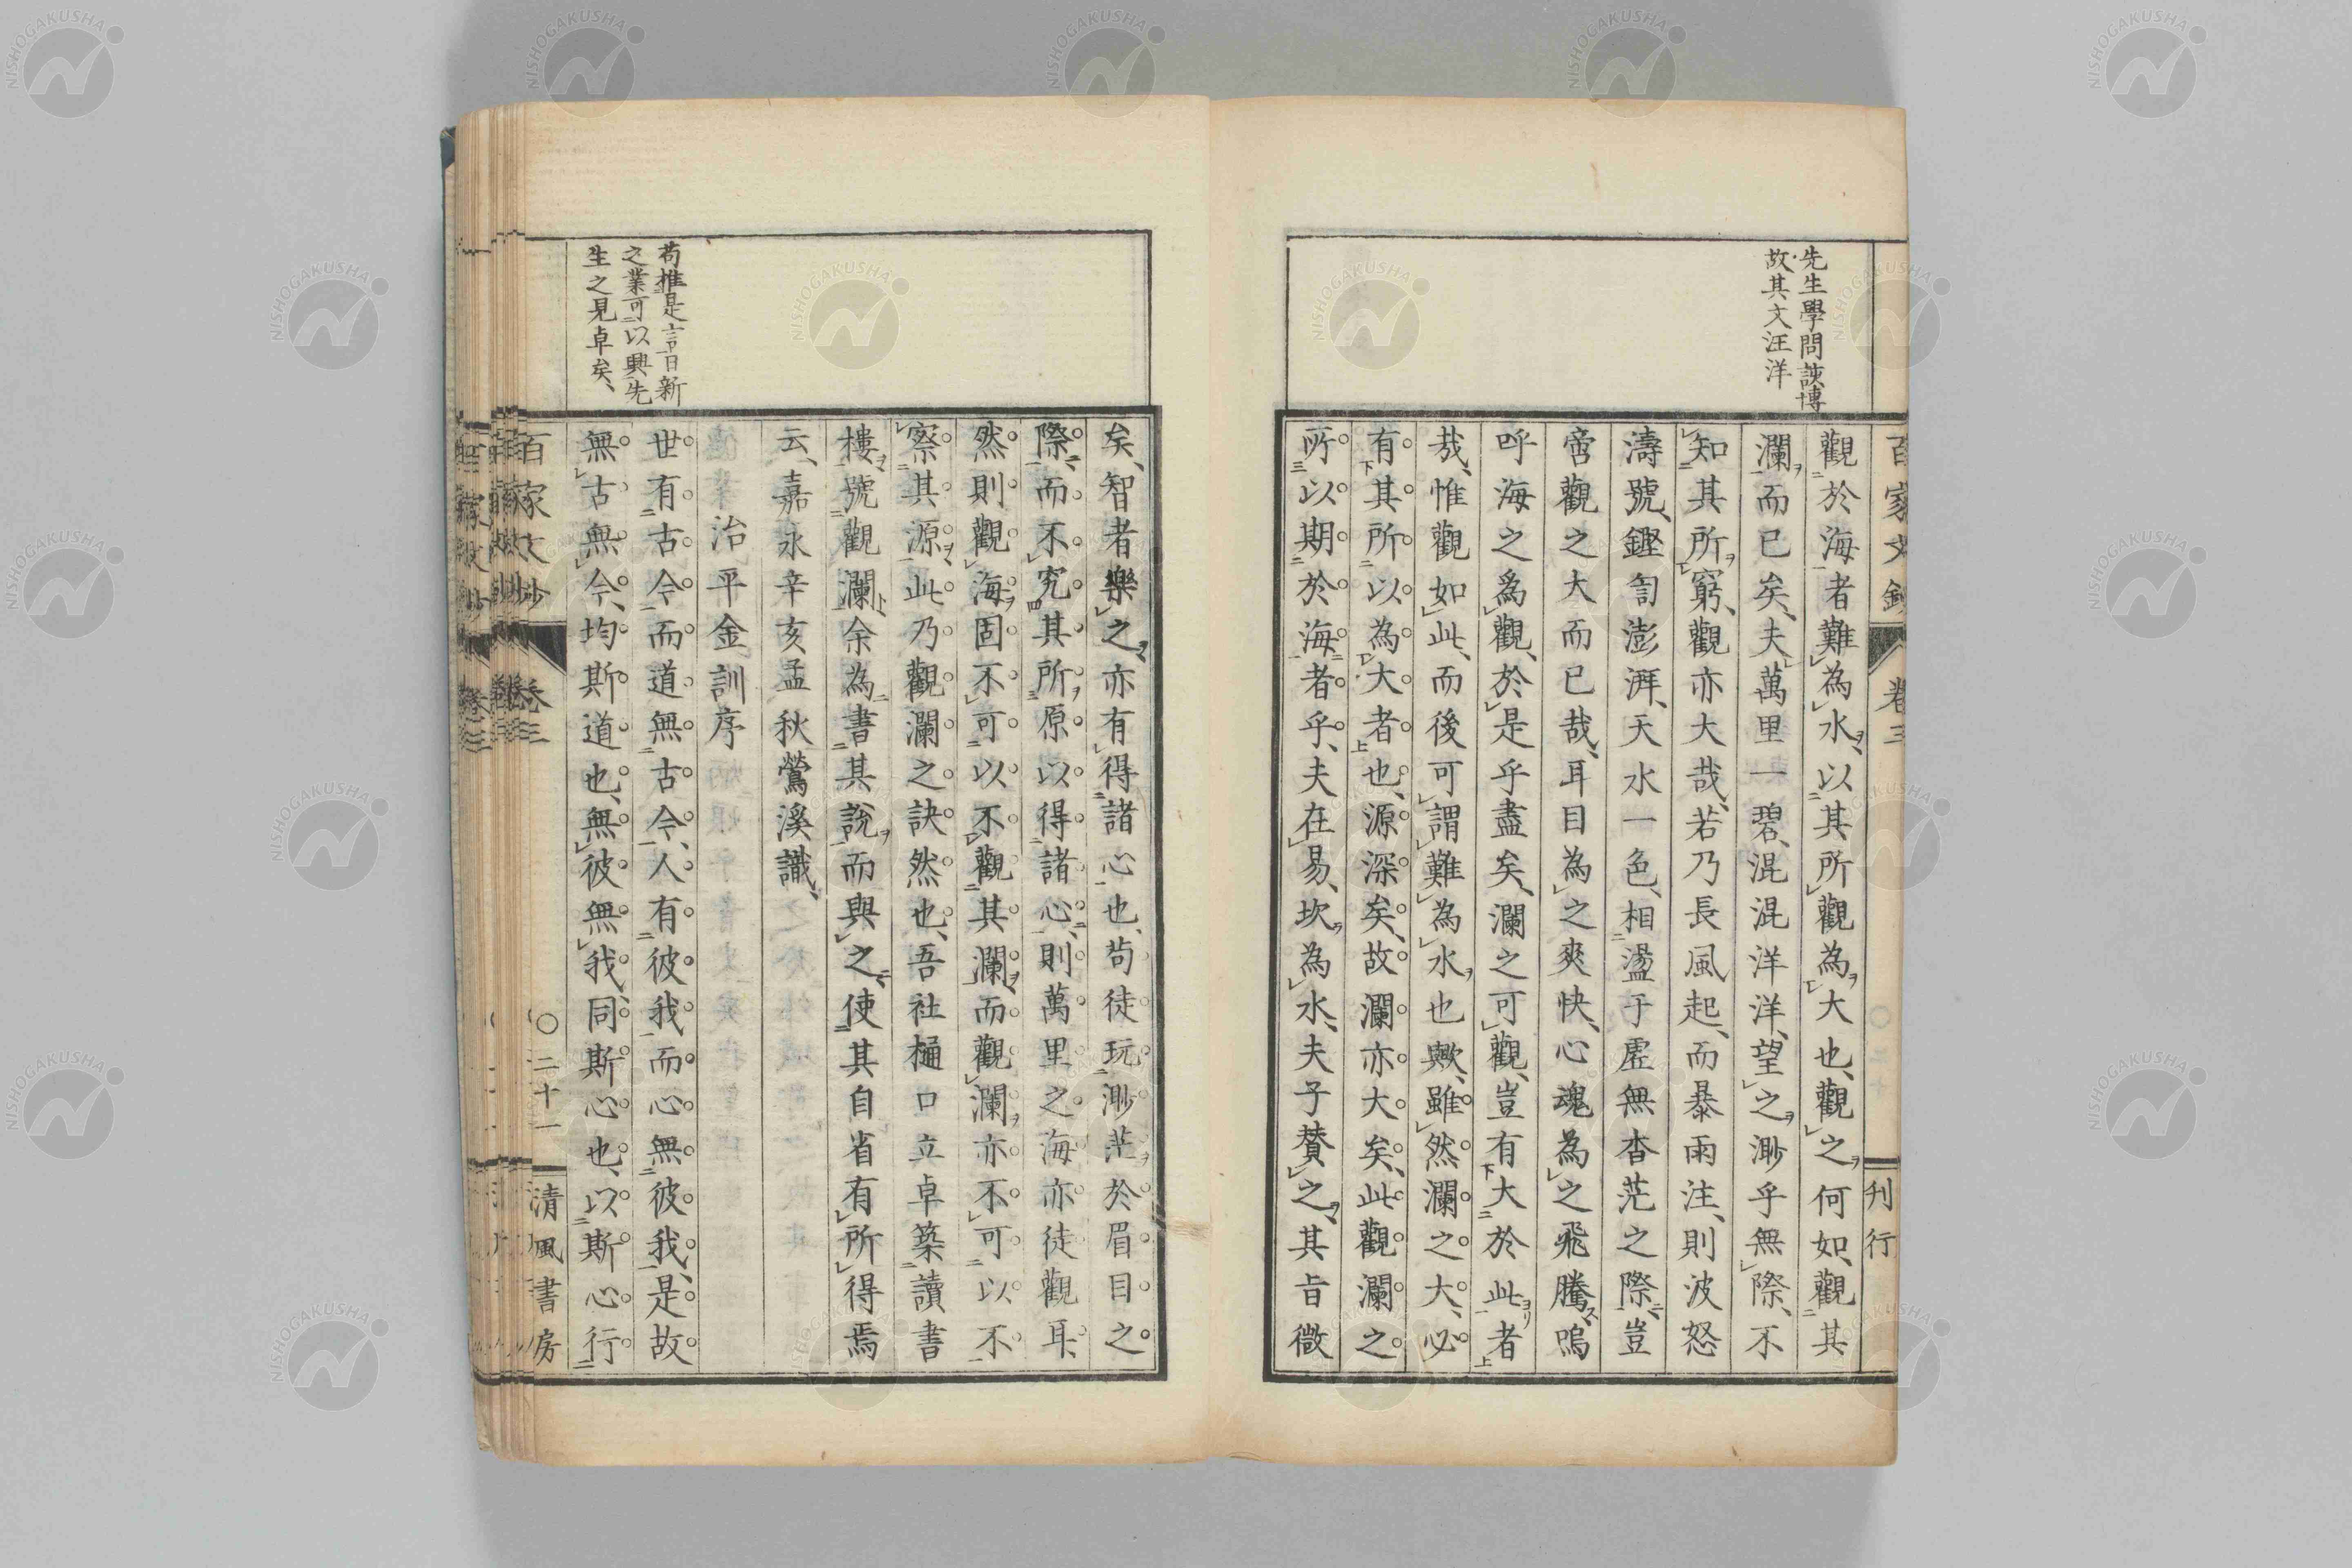 先生學問該博
故其文汪洋
百家文鈔
卷三
刊行
觀於海者難為水、以其所觀為大也、觀之何如、觀其
瀾而已矣、夫萬里一碧、混混洋洋、望之渺乎無際、不
知其所窮、觀亦大哉、若乃長風起、而暴雨注、則波怒
濤號、鏗訇澎湃、天水一色、相盪于虛無杳茫之際、豈
啻觀之大而已哉、耳目為之爽快、心魂為之飛騰、嗚
呼海之為觀、於是乎盡矣、瀾之可觀、豈有大於此者
哉、惟觀如此、而後可謂難為水也歟、雖然瀾之大、必
有其所以為大者也、源深矣、故瀾亦大矣、此觀瀾之
所以期於海者乎、夫在易、坎為水、夫子贊之、其旨微
矣、智者樂之、亦有得諸心也、苟徒玩渺茫於眉目之
際、而不究其所原以得諸心、則萬里之海亦徒觀耳、
然則觀海固不可以不觀其瀾、而觀瀾亦不可以不
察其源、此乃觀瀾之訣然也、吾社樋口立卓築讀書
樓、號觀瀾、余為書其說、而與之、使其自省有所得焉
云、嘉永辛亥孟秋鶯溪識、
治平金訓序
世有古今而道無古今、人有彼我而心無彼我、是故
無古無今、均斯道也、無彼無我、同斯心也、以斯心行
苟推是言日新
之業可以興先
生之見卓矣、
百家文鈔
卷三
〇二十一
清風書房